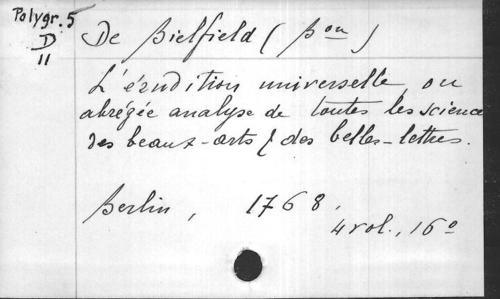 Polygr. 5
D
II
De Bielfield (Bon)
L'érudition universelle ou
abrégée analyse de toutes les science
des beaux-arts & des belles-lettres.
Berlin, 1768.
4 vol., 16°